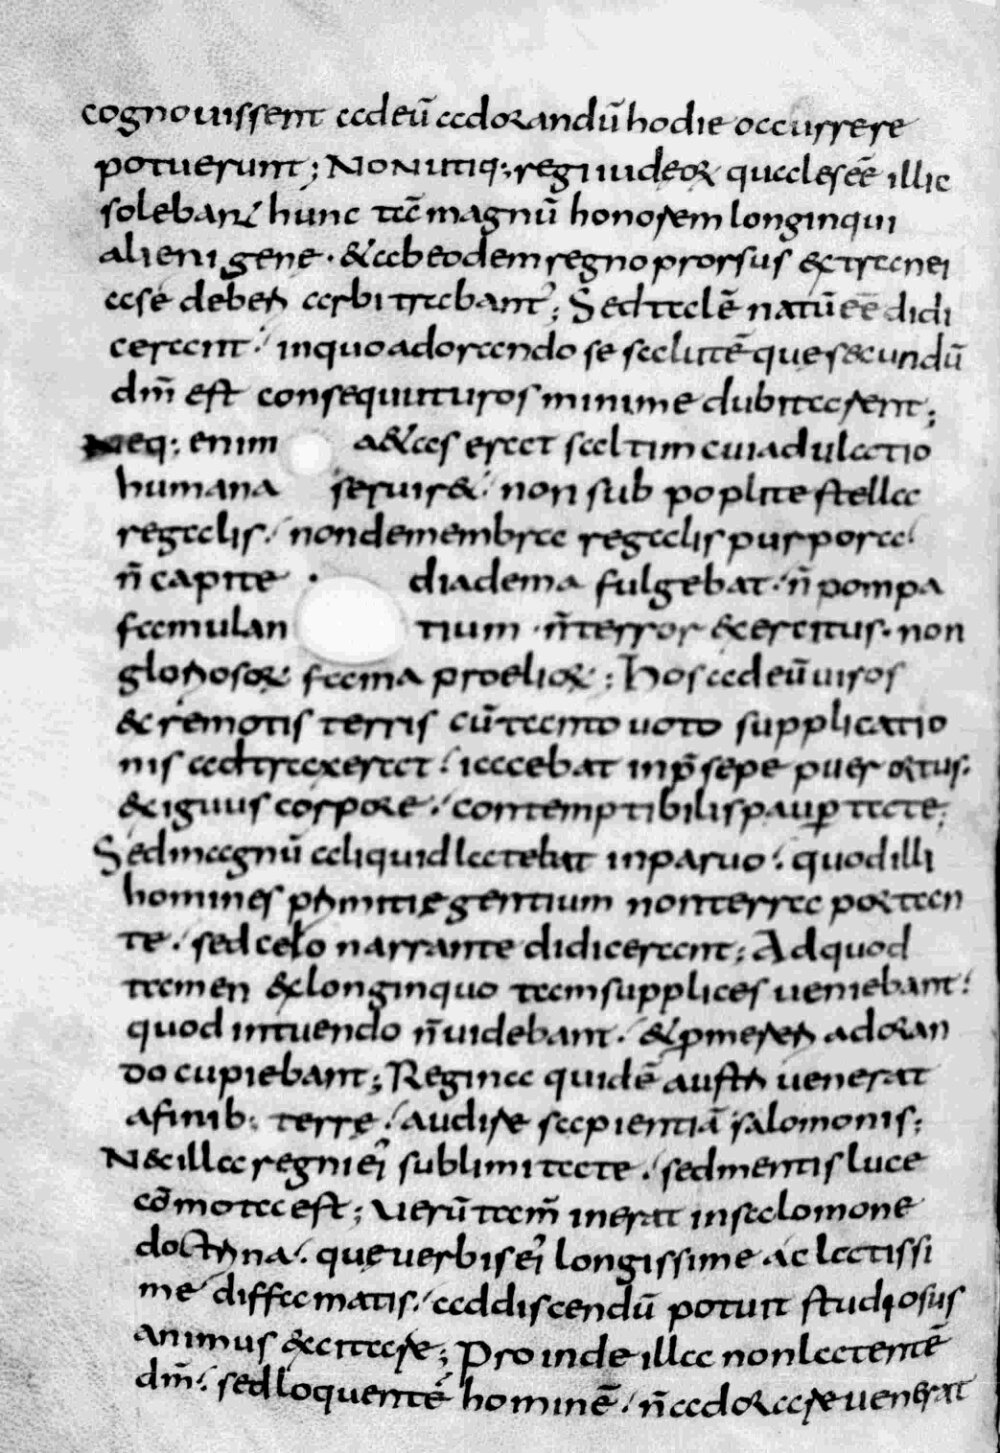 cognouissent addeū adorandū hodie occurrere
potuerunt; Non itaq; regi iudeoꝝ qualesēē illic
solebant hunc tā magnū honorem longinqui
alieni gene. & ab eodem regno prorsus extranei
ase debeñ arbitrabant; Sed talē natū eē didi
cerant. in quo adorando se salutē que secundū
dm̄ est consequuturos minime dubitarent;
Neq; enim a&as erat saltim cui adulatio
humana seruir&. non sub poplite stella
regalis. non de membra regalis purpora.
n̄ capite diadema fulgebat. n̄ pompa
famulan tium. n̄ terror exercitus. non
gloriosoꝝ fama proelioꝝ; Hos ad eū uiros
ex remotis terris cū tanto uoto supplicatio
nis adtraxerat. iacebat in p̄sepe puer ortus.
exiguus corpore. contemptibilis paup tate;
Sed magnū aliquid latebat in paruo. quod illi
homines primitię gentium non terra portan
te. sed celo narrante didicerant; Ad quod
tamen ex longinquo tam supplices ueniebant.
quod intuendo n̄ uidebant. & p mereri adoran
do cupiebant; Regina quidē austri uenerat
afinib; terrę. audire sapientiā salomonis;
N& illa regni ei sublimitate. sed mentis luce
cōmota est; Uerū tam̄ inerat in salomone
doctrina. quę uerbis ei longissime ac latissi
me diffamatis. ad discendū potuit studiosus
animus excitare; Proinde illa non latentē
dm̄. sed loquentē hominē. n̄ adorare uenerat